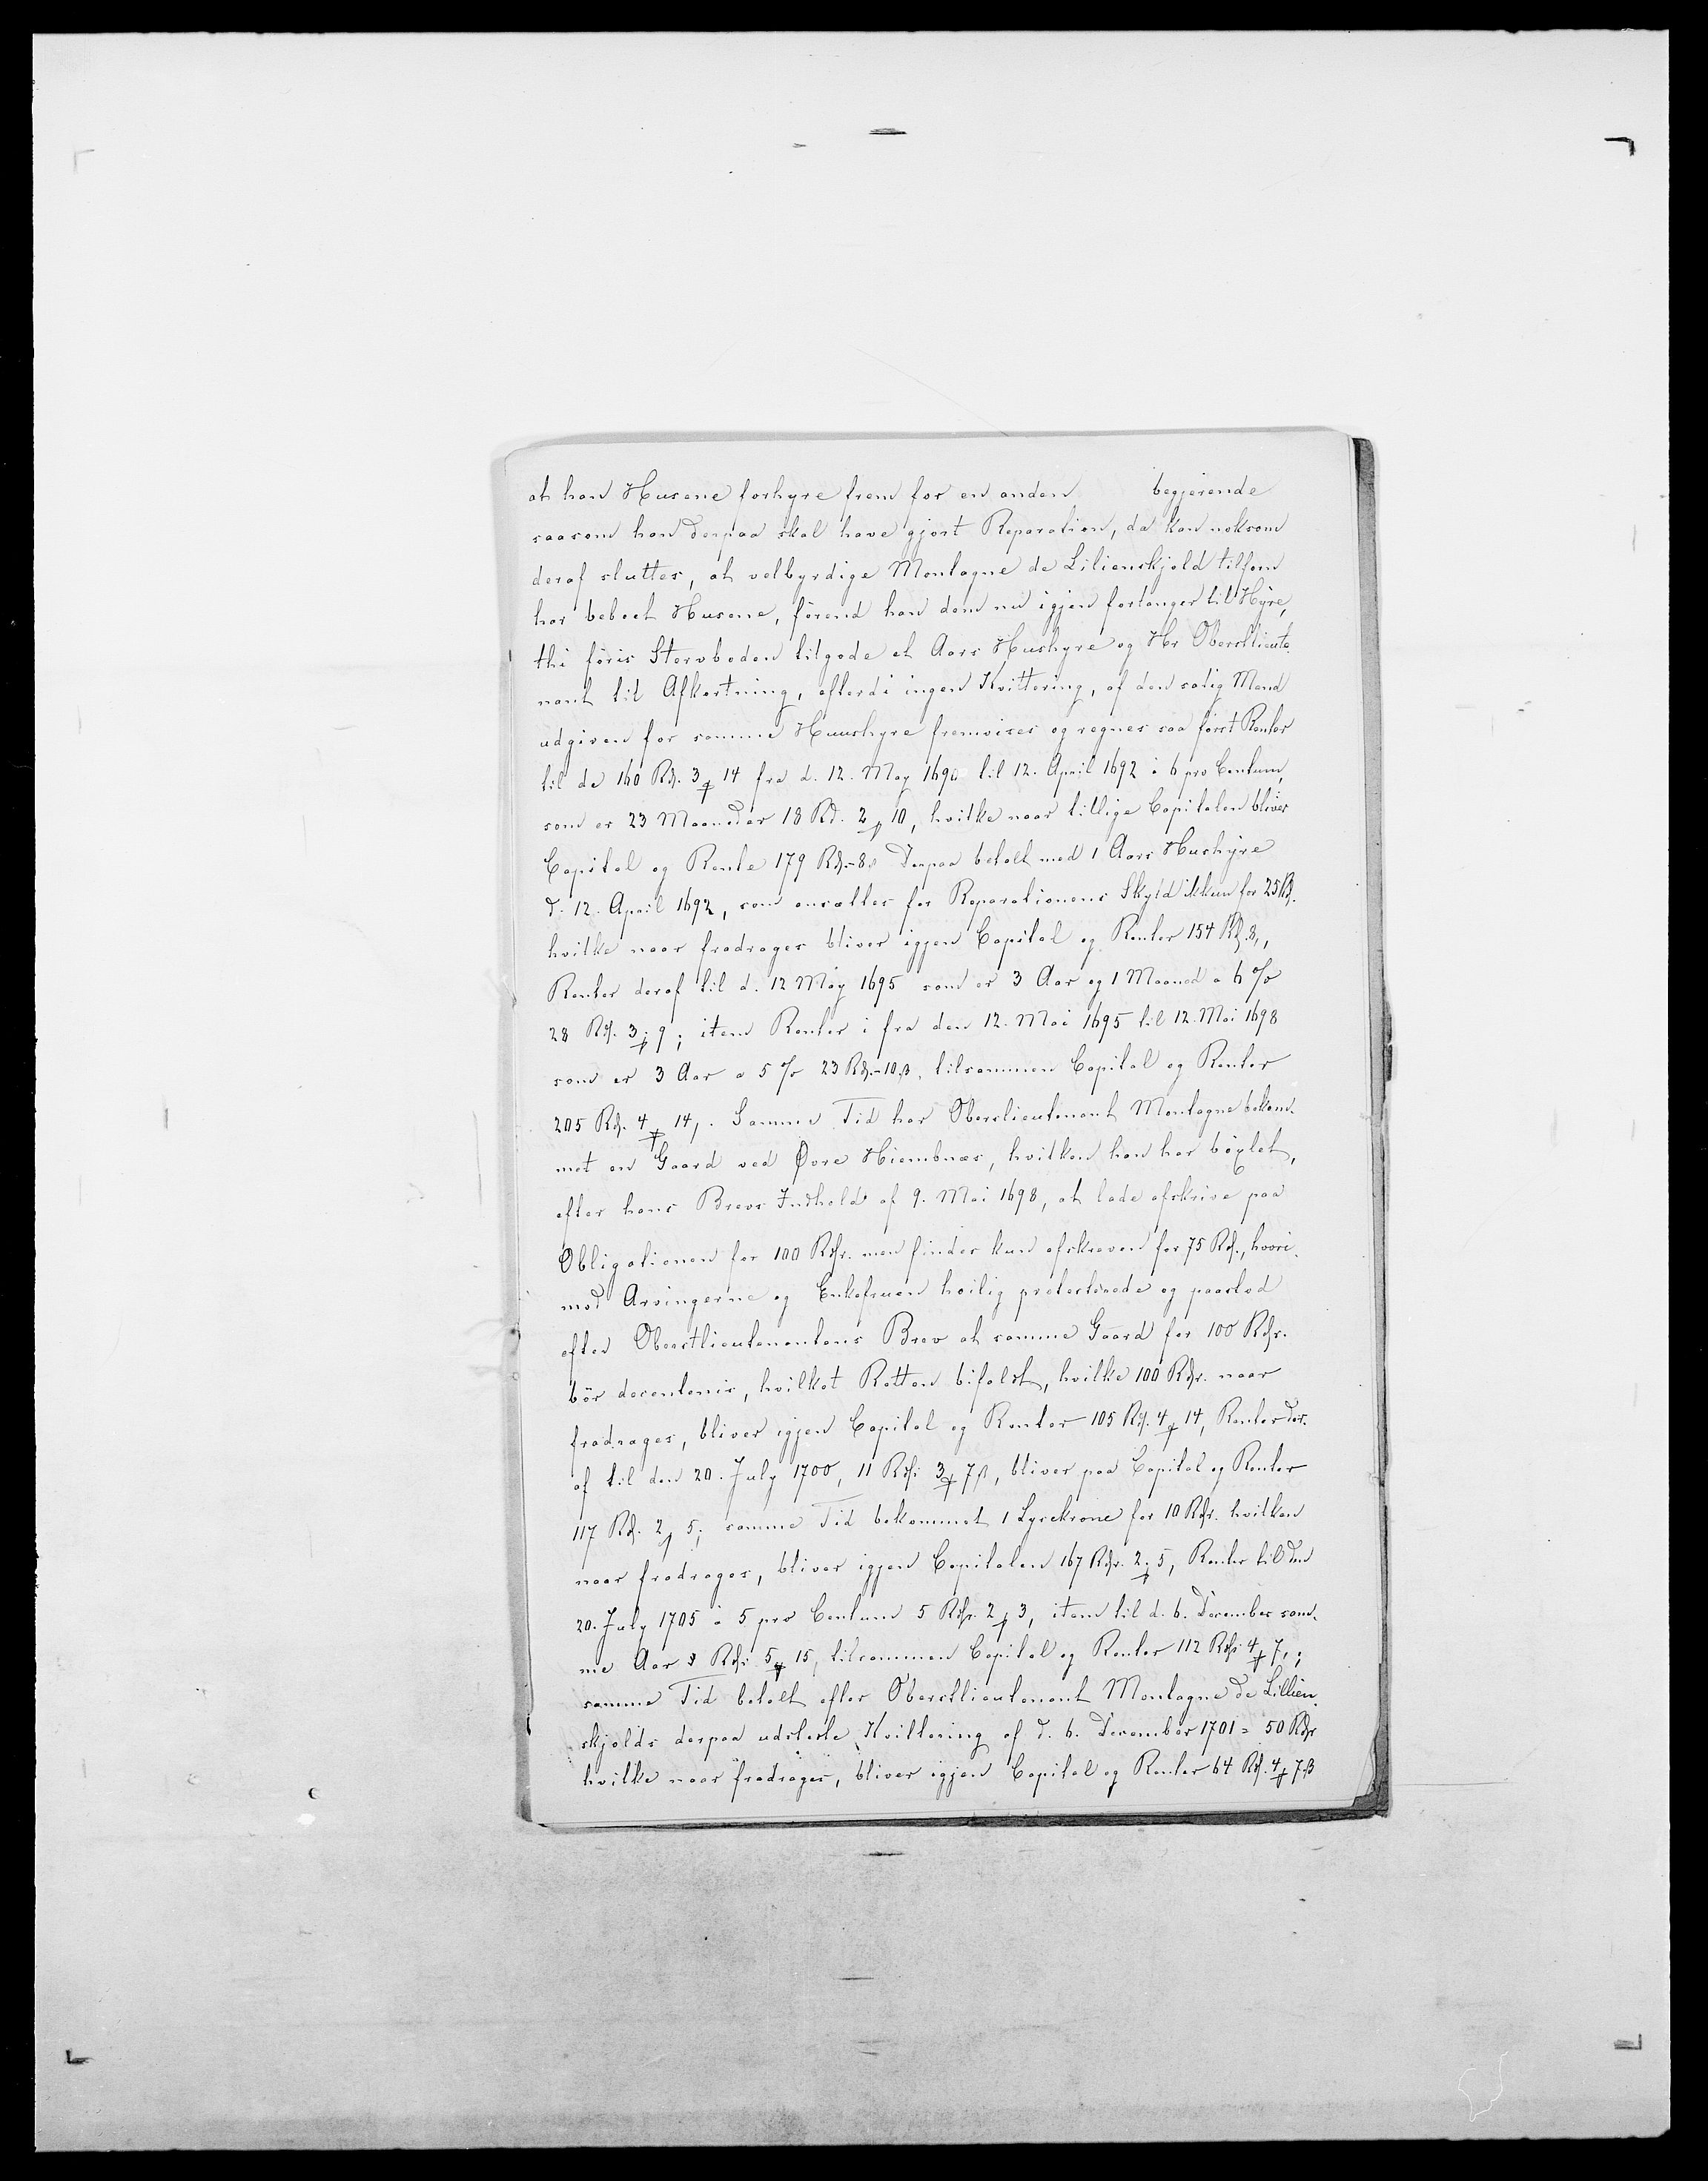 at han Husene forhyre frem for en anden begjerende
saasom han derpaa skal have gjort Reparation, da kan noksom
deraf sluttes, at velbyrdige Montagne de Lilienskjold tilforn
har beboet Husene, førend han dem nu igjen forlanger til Hyre,
thi føris Stervboden tilgode et Aars Hushyre og Hr Oberstlieute-
nant til Afkortning, efterdi ingen Kvittering, af den salig Mand
udgiven for samme Huushyre fremvises og regnes saa først Renter
til de 160 Rd. 3 ꝑ 14 fra d. 12. May 1690 til 12. April 1692 à 6 pro Centum,
som er 23 Maaneder 18 Rd. 2 ꝑ 10, hvilke naar tillige Capitalen bliver
Capital og Rente 179 Rd.-8 s Derpaa betalt med 1 Aars Hushyre
d. 12. April 1692, som ansættes for Reparationens Skyld ikkun for 25 Rd.
hvilke naar fradrages bliver igjen Capital og Renter 154 Rd. 8,,
Renter deraf til d. 12 May 1695 som er 3 Aar og 1 Maaned a 6 %
28 Rd. 3 ꝑ 9; item Renter i fra den 12. Mai 1695 til 12. Mai 1698
som er 3 Aar a 5 % 23 Rd.-10 β, tilsammen Capital og Renter
205 Rd. 4 ꝑ 14,. Samme Tid har Oberslieutenant Montagne bekom-
met en Gaard ved Øvre Hiembnæs, hvilken han har böxlet,
efter hans Brevs Indhold af 9. Mai 1698, at lade afskrive paa
Obligationen for 100 Rdr. men findes kun afskreven for 75 Rd., hvori-
mod Arvingerne og Enkefruen høilig protesterede og paastod
efter Oberstlieutenantens Brev at samme Gaard for 100 Rdr.
bör decenteris, hvilket Retten bifalst, hvilke 100 Rdr. naar
fradrages, bliver igjen Capital og Renter 105 Rd. 4 ꝑ 14, Renter der-
af til den 20. July 1700, 11 Rd. 3 ꝑ 7 β, bliver paa Capital og Renter
117 Rd. 2 ꝑ 5; samme Tid bekommet 1 Lysekrone for 10 Rdr. hvilken
naar fradrages, bliver igjen Capitalen 167 Rdr. 2 ꝑ 5, Renter til den
20. July 1705 à 5 pro Centum 5 Rdr. 2 ꝑ 3, item til d. 6. December sam-
me Aar Rd. 5 ꝑ 15, tilsammen Capital og Renter 112 Rd. 4 ꝑ 7,;
samme Tid betalt efter Oberstlieutenant Montagne de Lillien-
skjolds derpaa udstedte Kvittering af d. 6. December 1701 = 50 Rdr
hvilke naar fradrages, bliver igjen Capital og Renter 64 Rd. 4 ꝑ 7 β